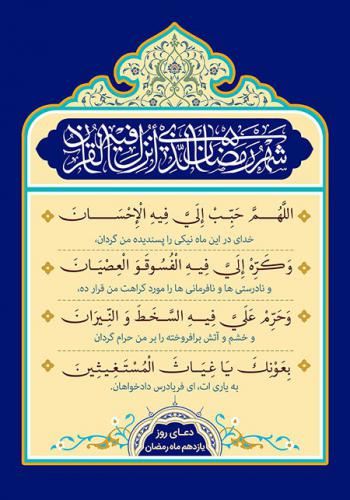 شهر رمضان الذی أنزل فیه القرآن
اللَّهُمَّ حَبِّبْ إِلَيَّ فِيهِ الْإِحْسَـــــانَ
خدای در این ماه نیکی را پسندیده من گردان،
وَ كَرِّهْ إِلَيَّ فِيهِ الْفُسُوقَ وَ الْعِصْيَانَ
و نادرستی ها و نافرمانی ها را مورد کراهت من قرار ده،
وَ حَرِّمْ عَلَيَّ فِيهِ السَّخَطَ وَ النِّيرَانَ
و خشم و آتش برافروخته را بر من حرام گردان
بِعَوْنِكَ يَا غِيَاثَ الْمُسْتَغِيثِينَ
به یاری ات، ای فریادرس دادخواهان.
دعـای روز
یازدهم ماه رمضان